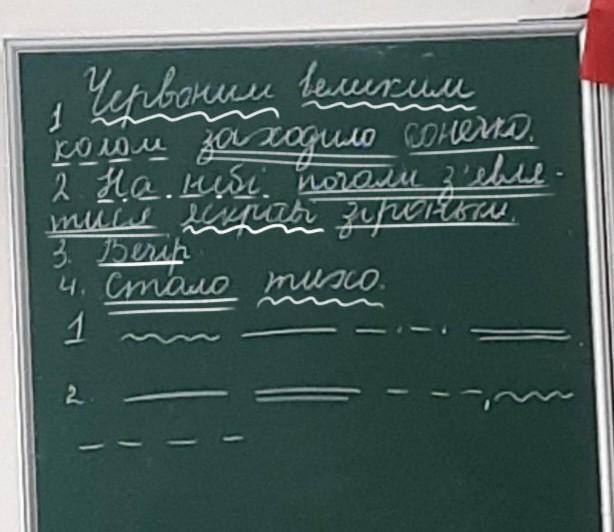 1 Червоним великим
колом заходило сонечко.
2. На небі почали з'явля-
тися яскраві зіроньки.
3. Вечір
4. Стало тихо.
1
2.